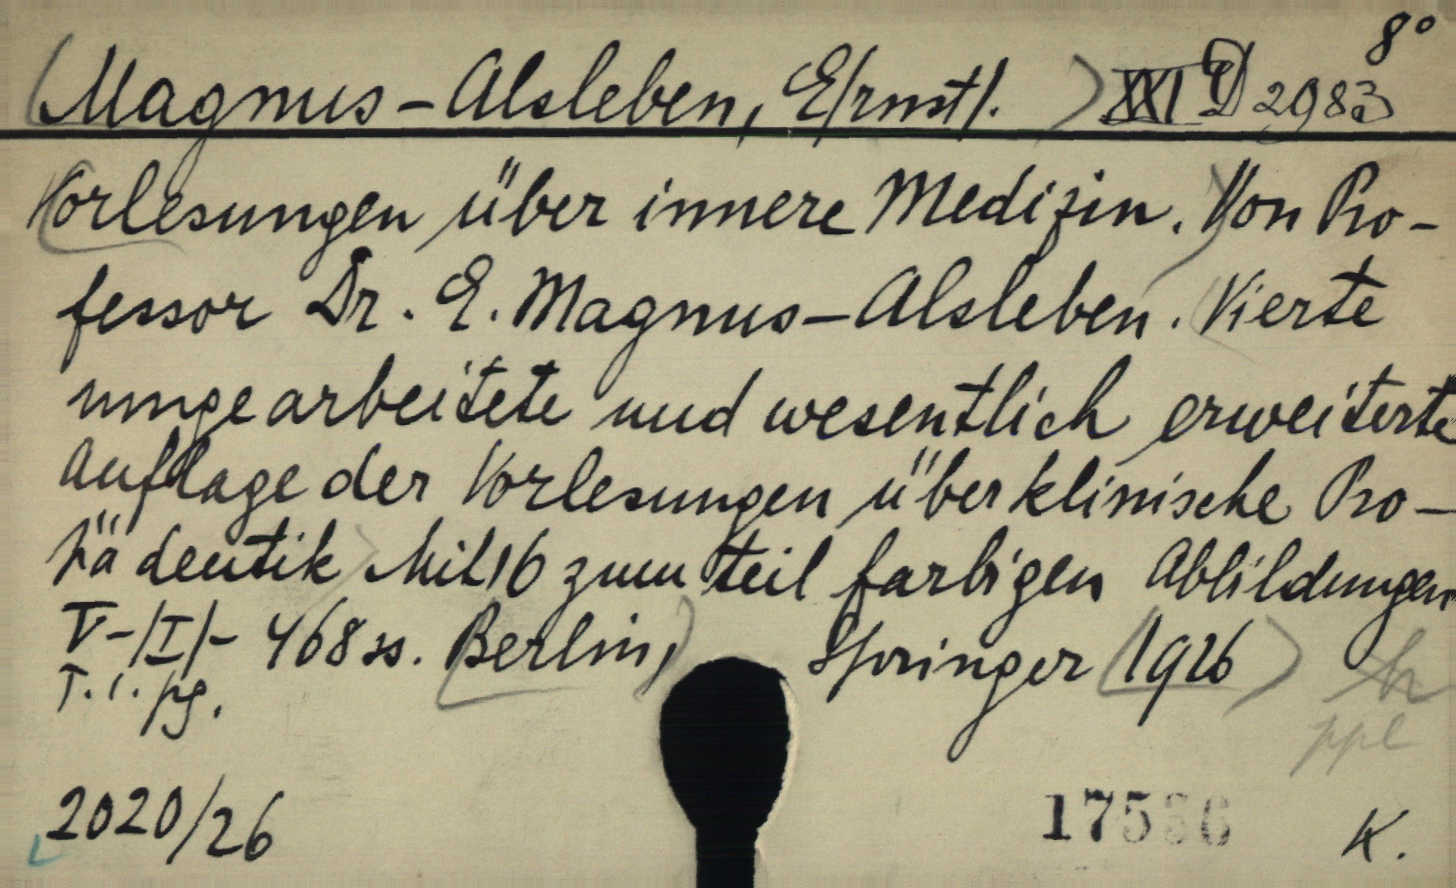 8°
(Magnus-Alsleben, E/rnst/.) XXI D 2983
Vorlesungen über innere Medizin. Von Pro-
fessor Dr. E. Magnus-Alsleben. Vierte
umgearbeitete und wesentlich erweiterte
Auflage der Vorlesungen über klinische Pro-
pädeutik Mit 16 zum teil farbigen Abbildungen
V-/I/- 468 ss. Berlin, Springer 1926
T. i. pg.
ppl
2020/26
17536 K.